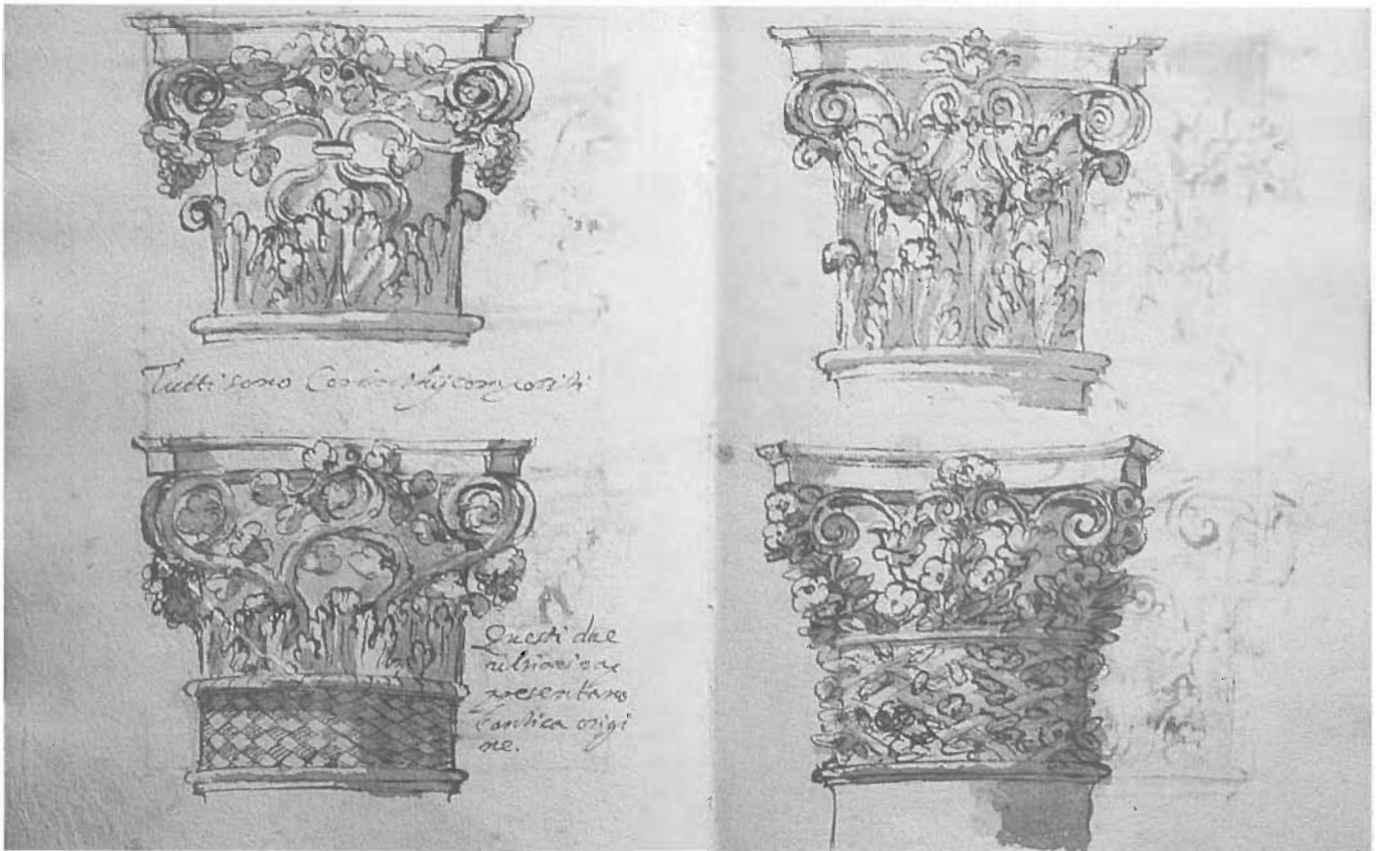 Tutti sono Corinthij compositi
Questi due
ultimi
presentano
l'antica origi
ne.